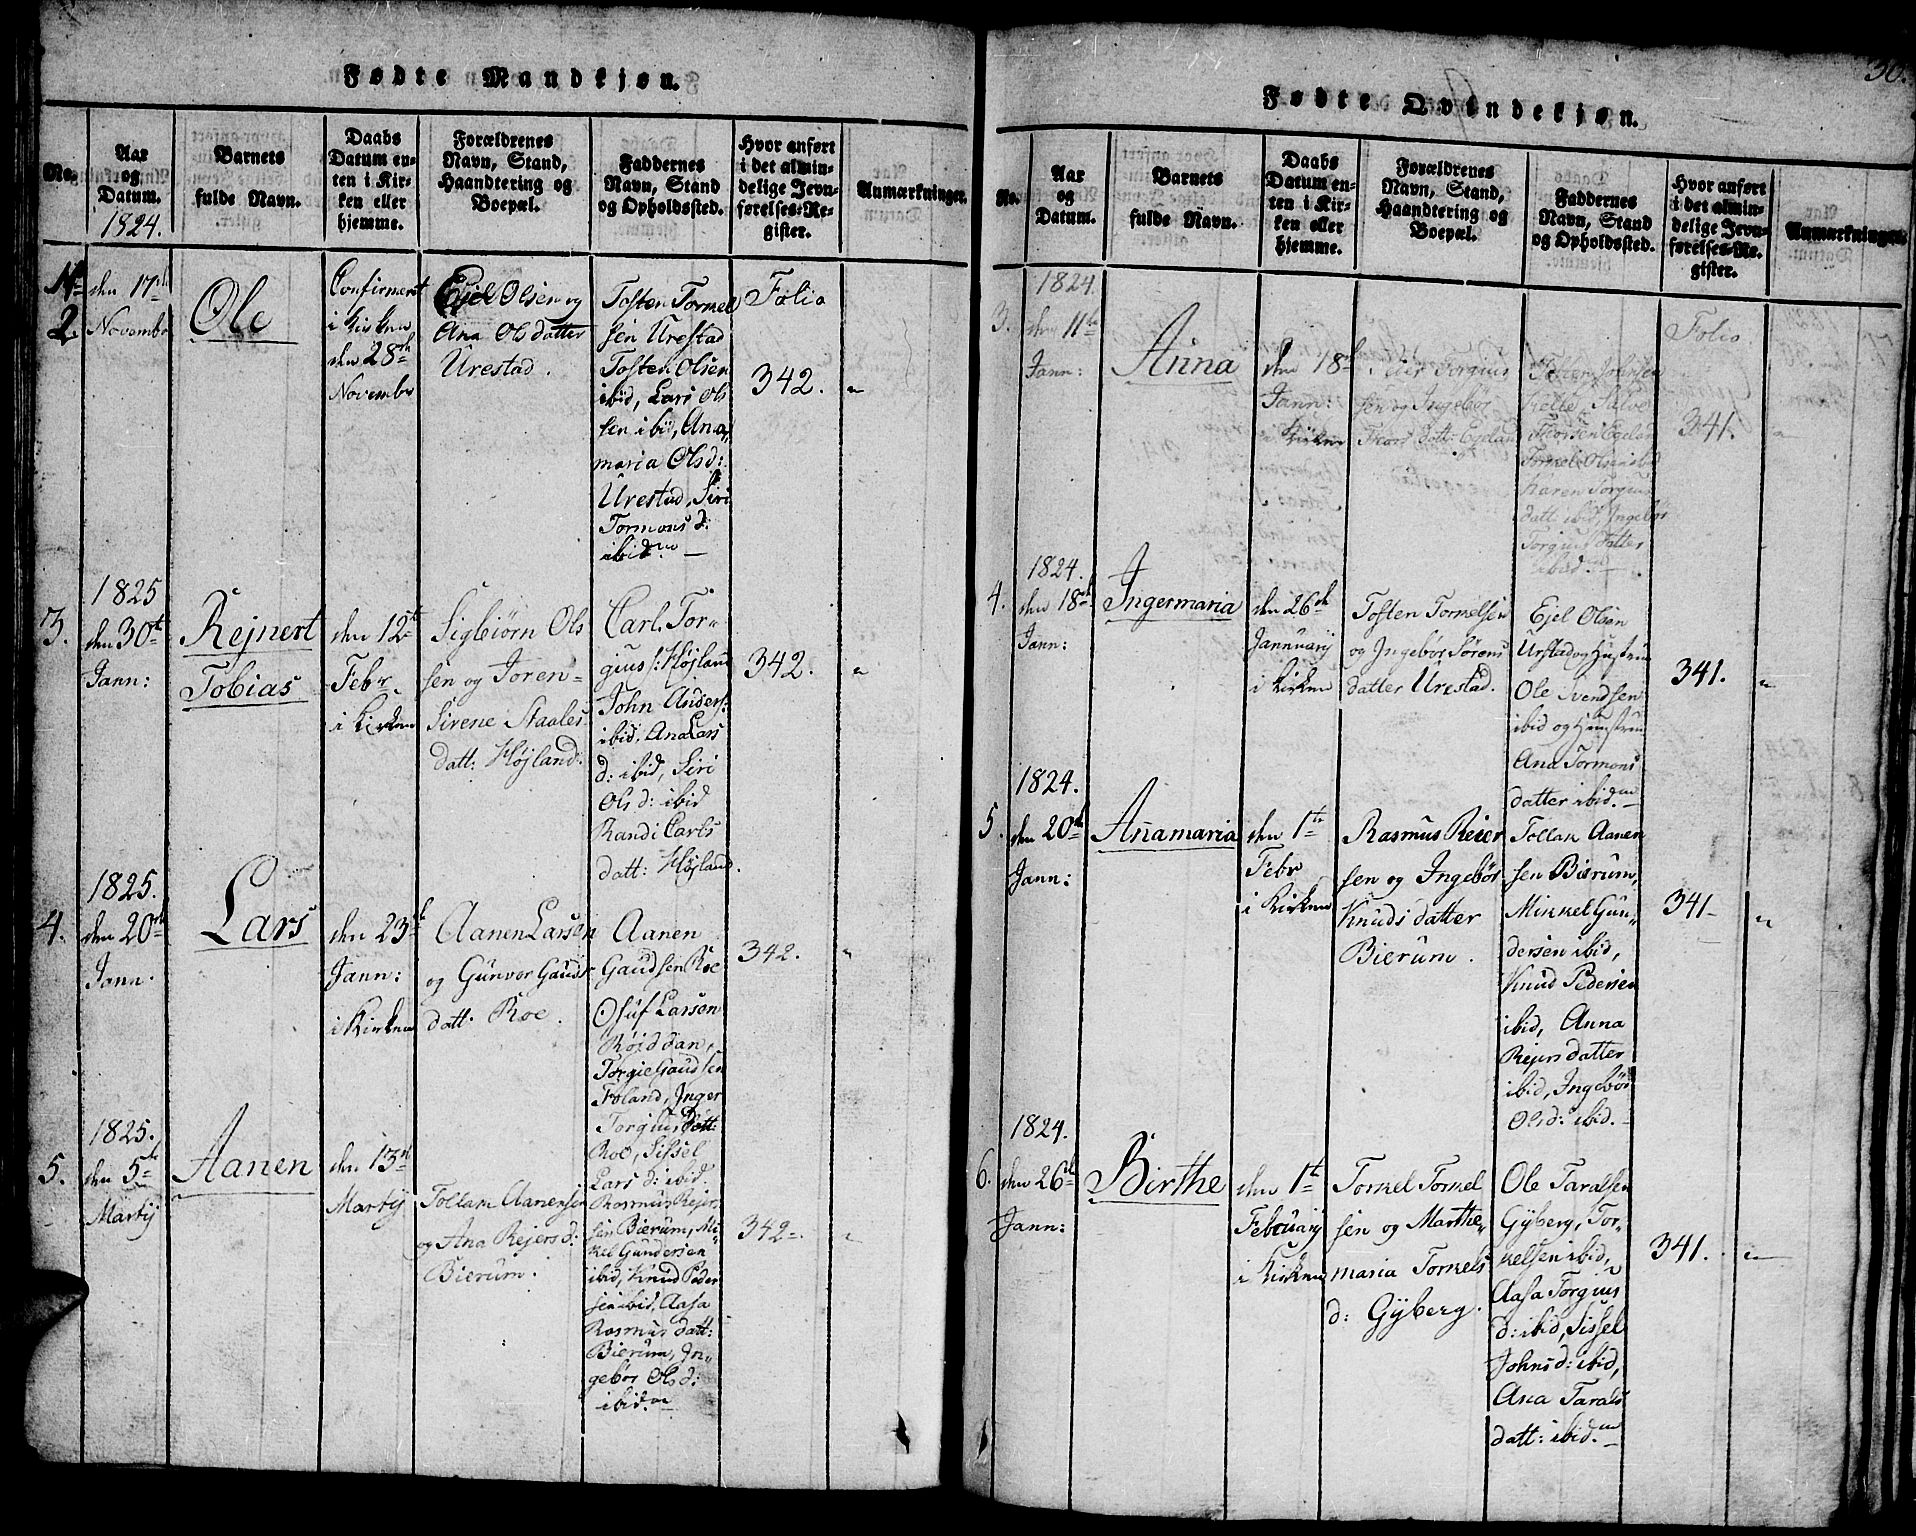 Fødte Mandkjøn.
No.
Aar
og
Datum.
1824.
Barnets
fulde Navn.
Daabs
Datum en-
ten i Kir-
ken eller
hjemme.
Forældrenes
Navn, Stand,
Haandtering og
Boepæl.
Faddernes
Navn, Stand
og Opholdssted.
Hvor anført
i det almin-
delige Jevn-
førelses-Re-
gister.
Anmærkninger.
2.
den 17de
Novembr
Ole
Confirmert
i Kirken
den 28de
Novembr
Ejel Olsen og
Ana Olsdatter
Urestad.
Tosten Tormel
sen Urestad
Tosten Olsen
ibid, Lars Ol
sen ibid, Ana
maria Olsd:
Urestad, Siri
Tormons d:
ibidm
Folio
342.
3.
1825
den 30te
Jann:
Rejnert
Tobias
den 12te
Febr
i Kirken
Sigbiørn Ols
sen og Joren-
Sirene Staales
datt: Højland.
Carl Tor-
gius s: Højland
John Anders:
ibid. Ana Lars
d: ibid, Siri
Ols d: ibid
Randi Carls
datt: Højland.
342.
4.
1825.
den 20de
Jann.
Lars
den 23de
Jann:
i Kirken
Aanen Larsen
og Gunvor Gauds
datt. Roe.
Aanen
Gaudsen Roe
Oluf Larsen
Røiddan,
Torgie Gaudsen
Foland, Inger
Torgius Datt:
Roe, Sissel
Lars d: ibid.
342.
5.
1825.
den 5te
Martij
Aanen
den 13de
Martij
Tollak Aanensen
og Ana Rejers d:
Bierum.
Rasmus Rejer
sen Bierum, Mi-
kel Gundersen
ibid, Knud Peder
sen ibid, Aasa
Rasmus datt:
Bierum, In-
gebor Ols d:
ibidm
342.
30.
Fødte Qvindekjøn.
No.
Aar
og
Datum.
Barnets
fulde Navn.
Daabs
Datum en-
ten i Kir-
ken eller
hjemme.
Forældrenes
Navn, Stand,
Haandtering og
Boepæl.
Faddernes
Navn, Stand
og Opholdssted.
Hvor anført
i det almin-
delige Jevn-
førelses-Re-
gister.
Anmærkninger.
3.
1824.
den 11te
Jann:
Anna
den 18de
Jann:
i Kirken
Torgius
sen og Ingebor
Thors datt: Egeland
Salve
Thorsen Egeland
Torkel Olsen ibid
Karen Torgius
datt ibid, Ingebor
Torgius datter
ibid.
Folio
341.
4.
1824.
den 18de
Jann:
Ingermaria
den 26de
Jannuarij
i Kirken
Tosten Tormelsen
og Ingebor Sørens
datter Urestad.
Ejel Olsen
Urstad og Hustrue
Ole Svendsen
ibid og Hustrue
Ana Tormons
datter ibidm
341.
5.
1824.
den 20de
Jann:
Anamaria
den 1te
Febr
i Kirken
Rasmus Reier
sen og Ingebør
Knuds datter
Bierum.
Tollak Aanen
sen Bierum,
Mikkel Gun-
dersen ibid,
Knud Pedersen
ibid, Anna
Rejers datter
ibid, Ingebør
Ols d: ibid.
341
6.
1824.
den 26de
Jann:
Birthe
den 1te
Februarij
i Kirken
Tormel Tormel
sen og Marthe-
maria Tormels
d: Gyberg.
Ole Taralsen
Gyberg, Tor-
kelsen ibid,
Aasa Torgius
d: ibid, Sissel
Johns d: ibid,
Ana Tarals
datt: ibidm
341.